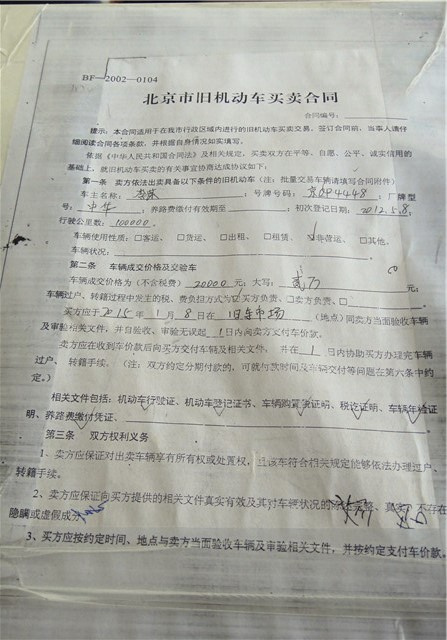 BF—2002—0104
北京市旧机动车买卖合同
合同编号:
提示:本合同适用于在我市行政区域内进行的旧机动车买卖交易。签订合同前,当事人请仔
细阅读合同各项条款,并根据自身情况如实填写。
依据《中华人民共和国合同法》及相关规定,买卖双方在平等、自愿、公平、诚实信用的
基础上,就旧机动车买卖的有关事宜协商达成协议如下:
第一条 卖方依法出卖具备以下条件的旧机动车(注:批量交易车辆请填写合同附件)
车主名称: 号牌号码: 4448 ;厂牌型
号: 中华 ;养路费缴付有效期至 ;初次登记日期: 2012.5.8;
行驶公里数: 100000.
车辆使用性质:□客运、 □货运、 □出租、 □租赁、 ☑非营运、 □其他。
车辆状况:
第二条 车辆成交价格及交验车
车辆成交价格为(不含税费) 20000 元;大写: 贰万 元;
车辆过户、转籍过程中发生的税、费负担方式为:☑买方负责、□卖方负责、□
买方应于2015年 1 月 8 日在 旧车市场 (地点)同卖方当面验收车辆
及审验相关文件,并自验收、审验无误起 1 日内向卖方支付车价款。
卖方应在收到车价款后向买方交付车辆及相关文件,并在 1 日内协助买方办理完车辆
过户、转籍手续。(注:双方约定分期付款的,可就付款时间及车辆交付等问题在第六条中约
定。)
相关文件包括:机动车行驶证、机动车登记证书、车辆购置税证明、税讫证明、车辆年检证
明、养路费缴付凭证、
第三条 双方权利义务
1、卖方应保证对出卖车辆享有所有权或处置权,且该车符合相关规定能够依法办理过户、
转籍手续。
2、卖方应保证向买方提供的相关文件真实有效及其对车辆状况的 、真实,不存在
隐瞒或虚假成分
3、买方应按约定时间、地点与卖方当面验收车辆及审验相关文件,并按约定支付车价款。